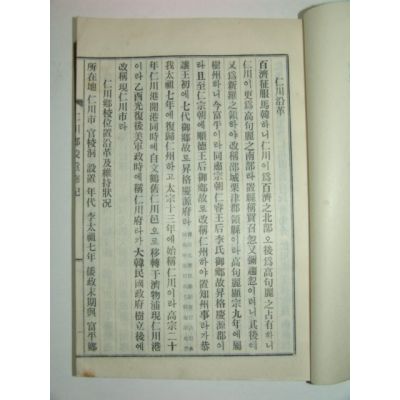 仁川沿革
百濟征服馬韓하니仁川이爲百濟之北部오後爲高句麗之占有하니
仁川이更爲高句麗之南部라置縣稱買召忽又彌趨忽이러니其後에
又爲新羅之領하야改稱邵城栗津郡領縣이라高句麗顯宗九年에屬
樹州하니今富平이라同肅宗朝仁睿王后李氏御鄕故로昇格慶源郡이
라且至仁宗朝에順德王后御鄕故로改稱仁州하야置知州事라가恭
讓王初에七代御鄕故로昇格慶源府라
我太祖七年에復歸仁州하고太宗十三年에始稱仁川이라高宗二十
年仁川港開港同時에自文鶴舊仁川邑으로移轉于濟物浦現仁川港
이라乙酉光復後美軍政時에稱仁川府라가大韓民國政府樹立後에
改稱現仁川市라
仁川鄕校位置沿革及維持狀況
所在地 仁川市 官校洞 設置 年代 李太祖七年 倭政末期與 富平鄕